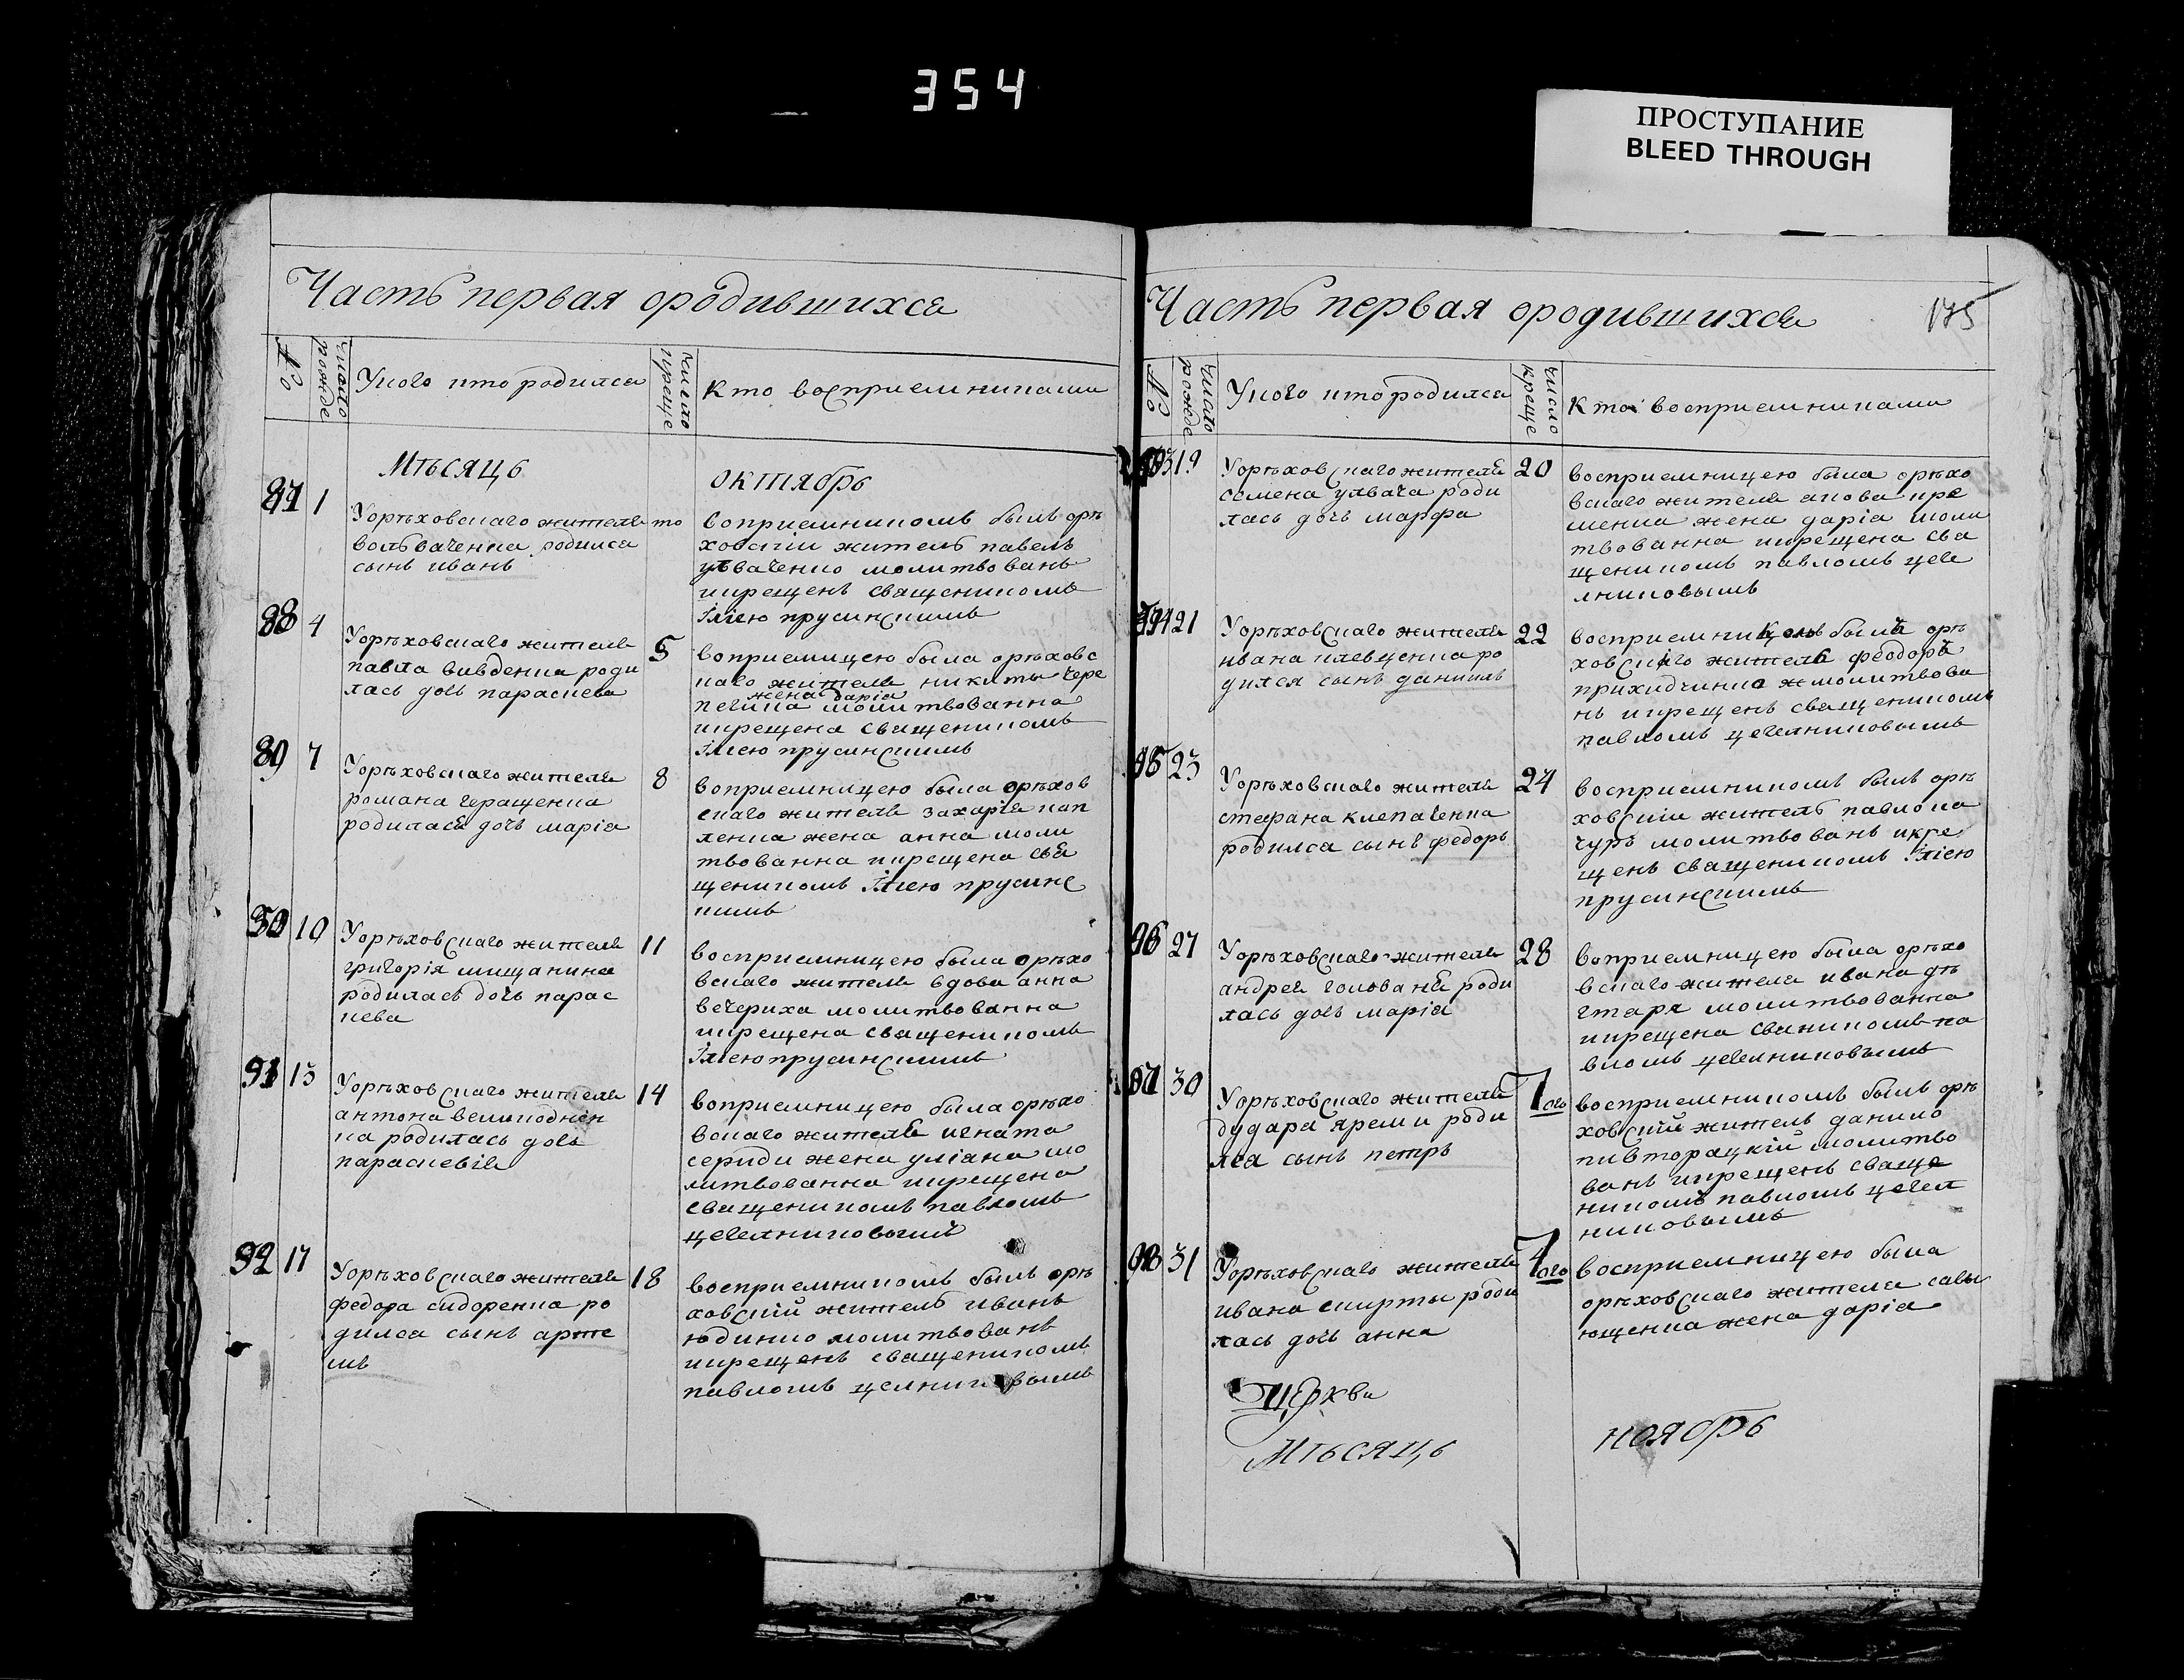 354
ПРОСТУПАНИЕ
BLEED THROUGH
Часть первая ородившихся
№
число рожде
Укого кто родился
число креще
Кто восприемниками
Мѣсяць
октябрь
87 1
Уорѣховскаго жителя
родился
сынь ивань
то
воприемникомь быль орѣ
ховскїи житель павель
молитвовань
икрещень священникомь
Ілїею прусинскимь
88 4
Уорѣховскаго жителя
павла вивденка роди
лась дочь параскева
5
воприемицею была орѣховс
каго жителя никиты чере
жена дарїа
печина молитвованна
икрещена священикомь
Ілїею прусинскимь
89 7
Уорѣховскаго жителя
романа геращенка
родилася дочь марїа
8
воприемницею была орѣхов
скаго жителя захарїя кап
ленка жена анна моли
твованна икрещена свя
щеникомь Ілїею прусинс
кимь
90 10
Уорѣховскаго жителя
григорїя мищанина
родилась дочь парас
кева
11
восприемницею была орѣхо
вскаго жителя вдова анна
вечериха молитвованна
икрещена священикомь
Ілїею прусинскимь
91 13
Уорѣховскаго жителя
антона великоднен
ка родилась дочь
параскевїя
14
воприемницею была орѣхо
вскаго жителя игната
середи жена улїана мо
литвованна икрещена
священикомь павломь
цегелниковымь
92 17
Уорѣховскаго жителя
федора сидоренка ро
дился сынь арте
мь
18
восприемникомь быль орѣ
ховскїй житель ивань
юдинко молитвовань
икрещень священикомь
павломь
Часть первая ородившихся
175
№
число рожде
Укого кто родился
число креще
Кто восприемниками
93 19
Уорѣховскаго жителя
семена улвача роди
лась дочь марфа
20
восприемницею была орѣхо
вскаго жителя якова кре
менка жена дарїа моли
твованна икрещена свя
щеникомь павломь цеге
лниковымь
94 21
Уорѣховскаго жителя
ивана клевценка ро
дился сынь данїиль
22
орѣ
феодора
приходченко молитвова
нь икрещень священикомь
павломь цегелниковымь
95 23
Уорѣховскаго жителя
стефана клепаченка
родился сынь федорь
24
восприемникомь быль орѣ
ховскїи житель павло ка
чурь молитвовань икре
щень священикомь Ілїею
прусинскимь
96 27
Уорѣховскаго жителя
андрея голованя роди
лась дочь марїа
28
воприемницею была орѣхо
вскаго жителя ивана дѣ
гтаря молитвованна
икрещена
вломь цегелниковымь
97 30
Уорѣховскаго жителя
дудара яреми роди
лся сынь петрь
1 ого
восприемникомь быль орѣ
ховскїй житель данило
пивторацкїй молитво
вань икрещень свяще
никомь павломь цегел
никовымь
98 31
Уорѣховскаго жителя
ивана скирты роди
лась дочь анна
4 ого
восприемницею была
орѣховскаго жителя савы
ющенка жена дарїа
Мѣсяць
ноябрь